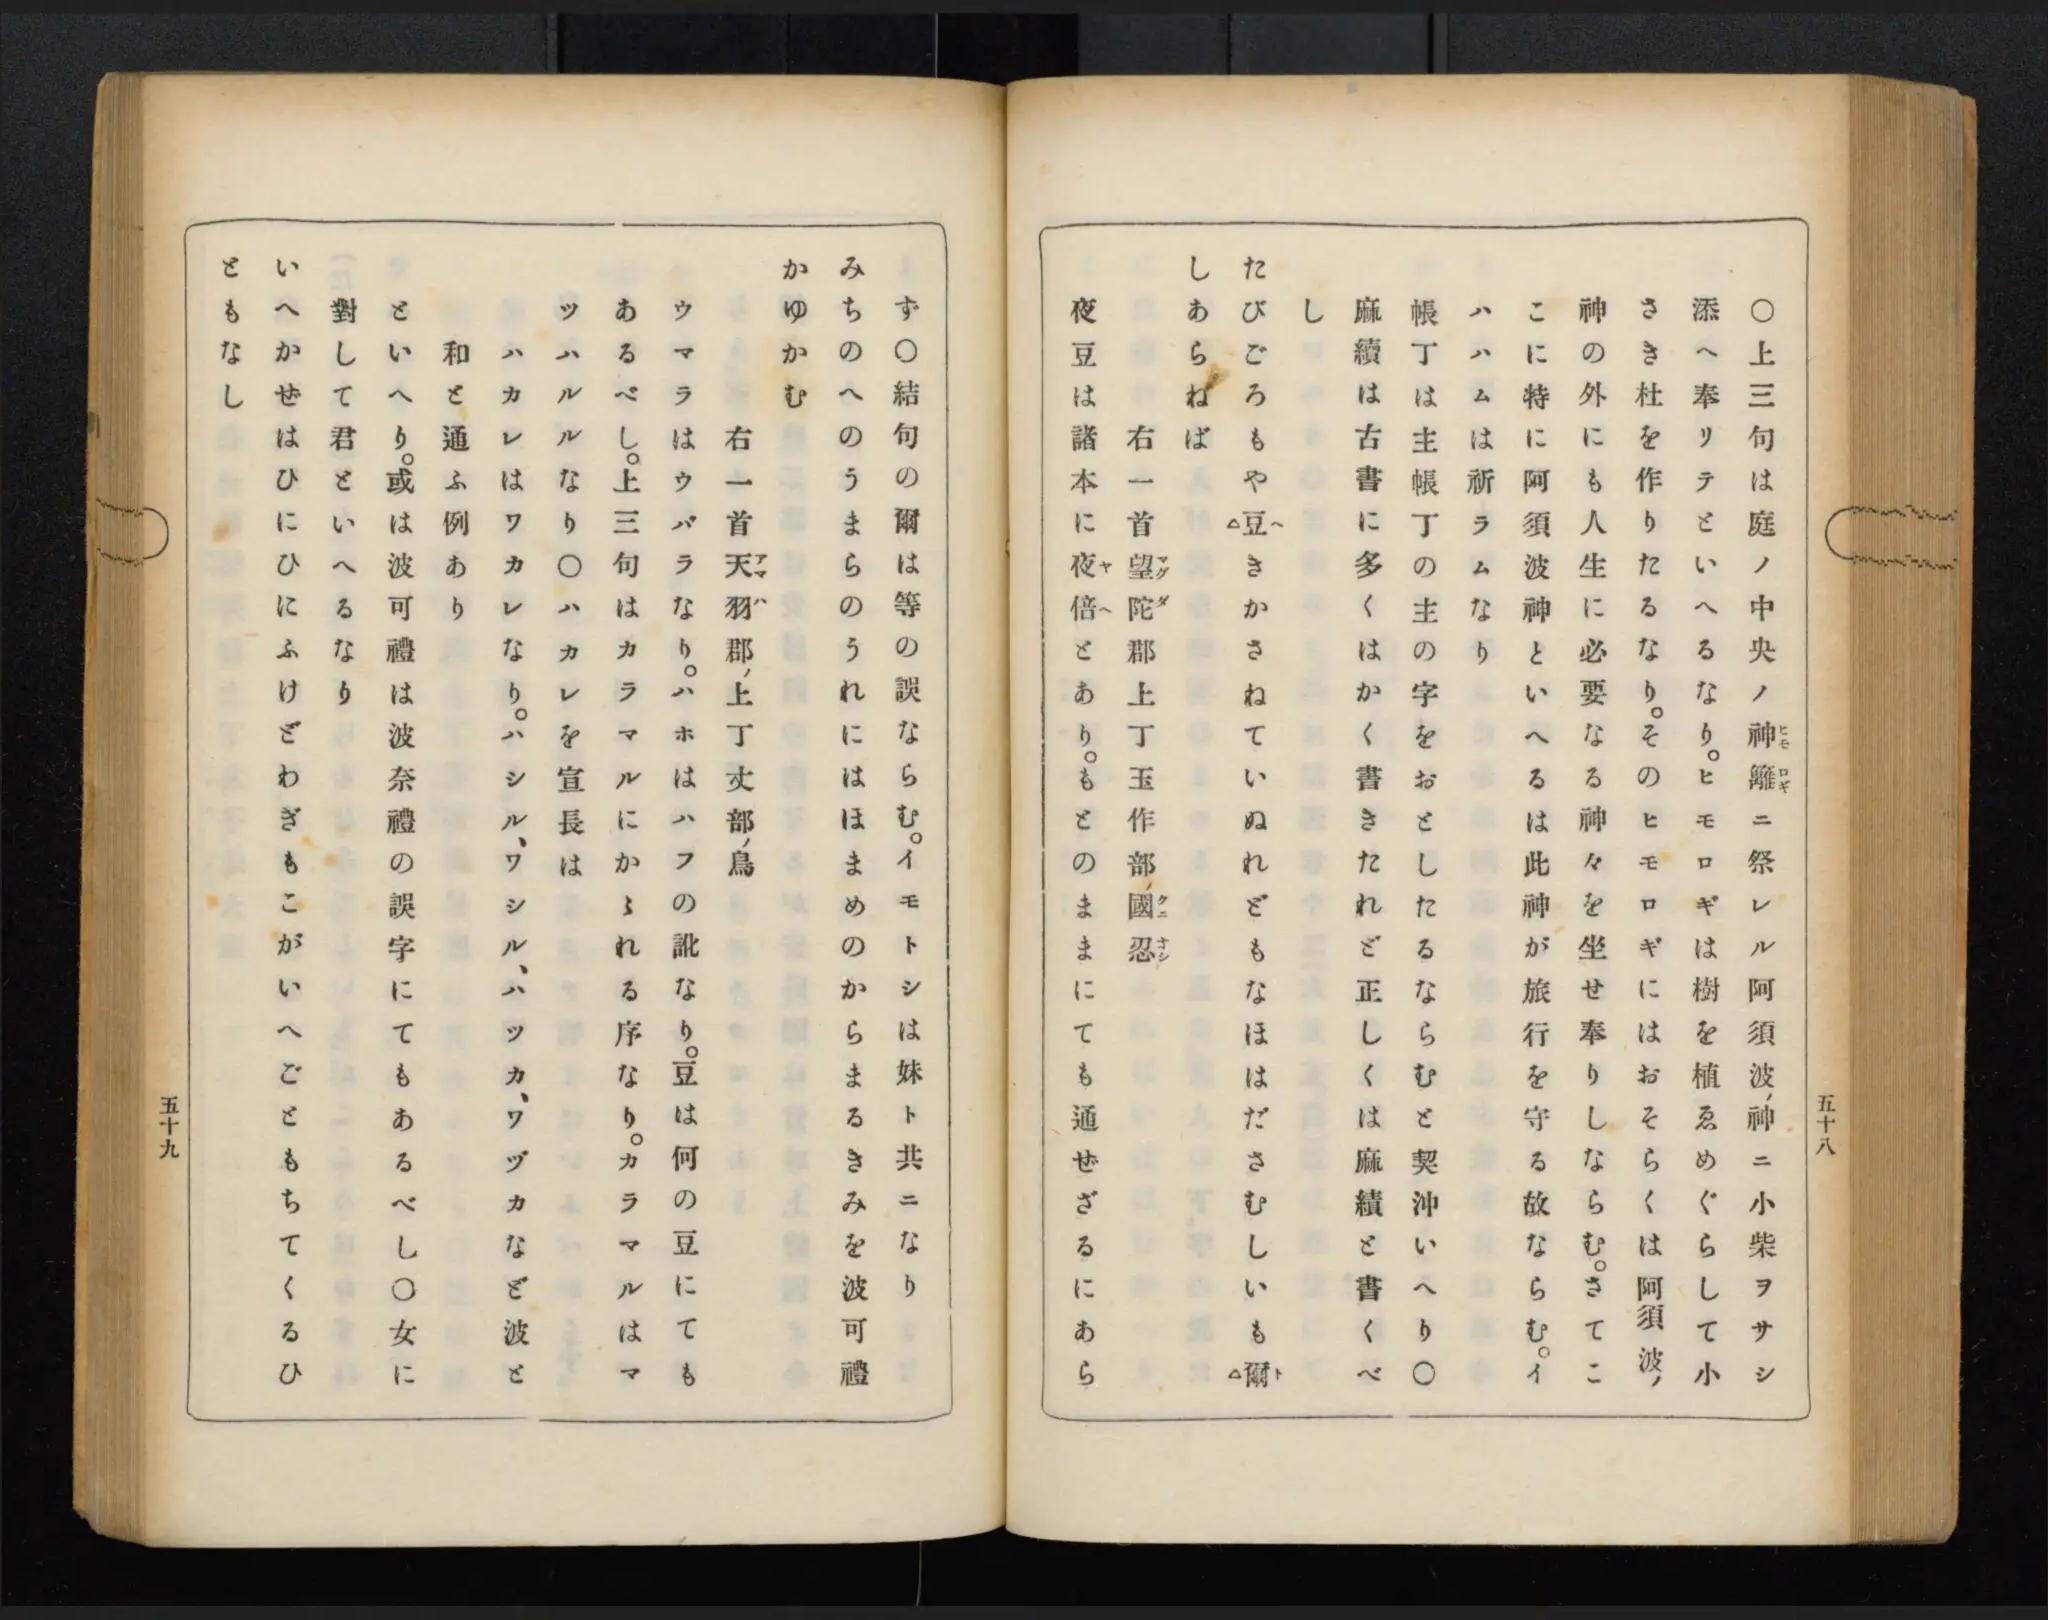 〇上三句は庭ノ中央ノ神籬ニ祭レル阿須波ノ神ニ小柴ヲサシ
添ヘ奉リテといへるなり。ヒモロギは樹を植ゑめぐらして小
さき杜を作りたるなり。そのヒモロギにはおそらくは阿須波ノ
神の外にも人生に必要なる神々を坐せ奉りしならむ。さてこ
こに特に阿須波神といへるは此神が旅行を守る故ならむ。イ
ハハムは祈ラムなり
帳丁は主帳丁の主の字をおとしたるならむと契沖いへり〇
麻續は古書に多くはかく書きたれど正しくは麻績と書くべ
し
たびごろもや豆きかさねていぬれどもなほはだささむしいも爾
しあらねば
右一首望陀郡上丁玉作部ノ國忍
夜豆は諸本に夜倍とあり。もとのままにても通ぜざるにあら
五十八
ず〇結句の爾は等の誤ならむ。イモトシは妹ト共ニなり
みちのへのうまらのうれにはほまめのからまるきみを波可禮
かゆかむ
右一首天羽郡ノ上丁丈部ノ鳥
ウマラはウバラなり。ハホはハフの訛なり。豆は何の豆にても
あるべし。上三句はカラマルにかゝれる序なり。カラマルはマ
ツハルルなり〇ハカレを宣長は
ハカレはワカレなり。ハシル、ワシル、ハツカ、ワヅカなど波と
和と通ふ例あり
といへり。或は波可禮は波奈禮の誤字にてもあるべし〇女に
對して君といへるなり
いへかぜはひにひにふけどわぎもこがいへごともちてくるひ
ともなし
五十九